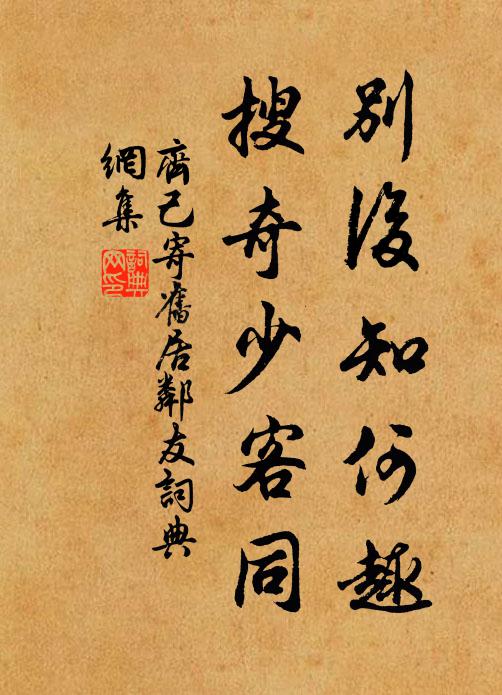 別後知何趣
搜奇少客同
齊己寄舊居鄰友詞典
網集
詞典
网印